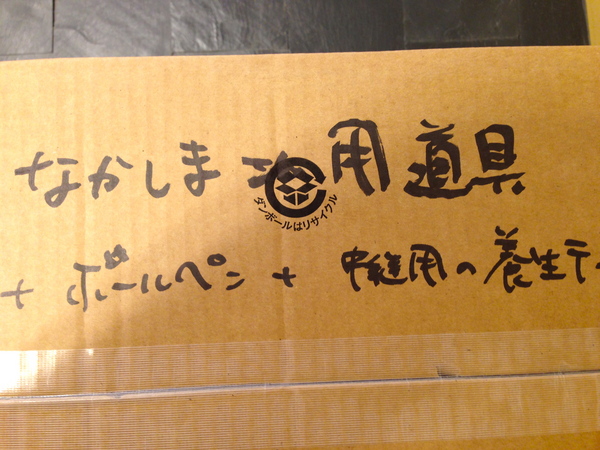 なかしま 用道具
ダンボールはリサイクル
+ ボールペン + 中継用の養生テ